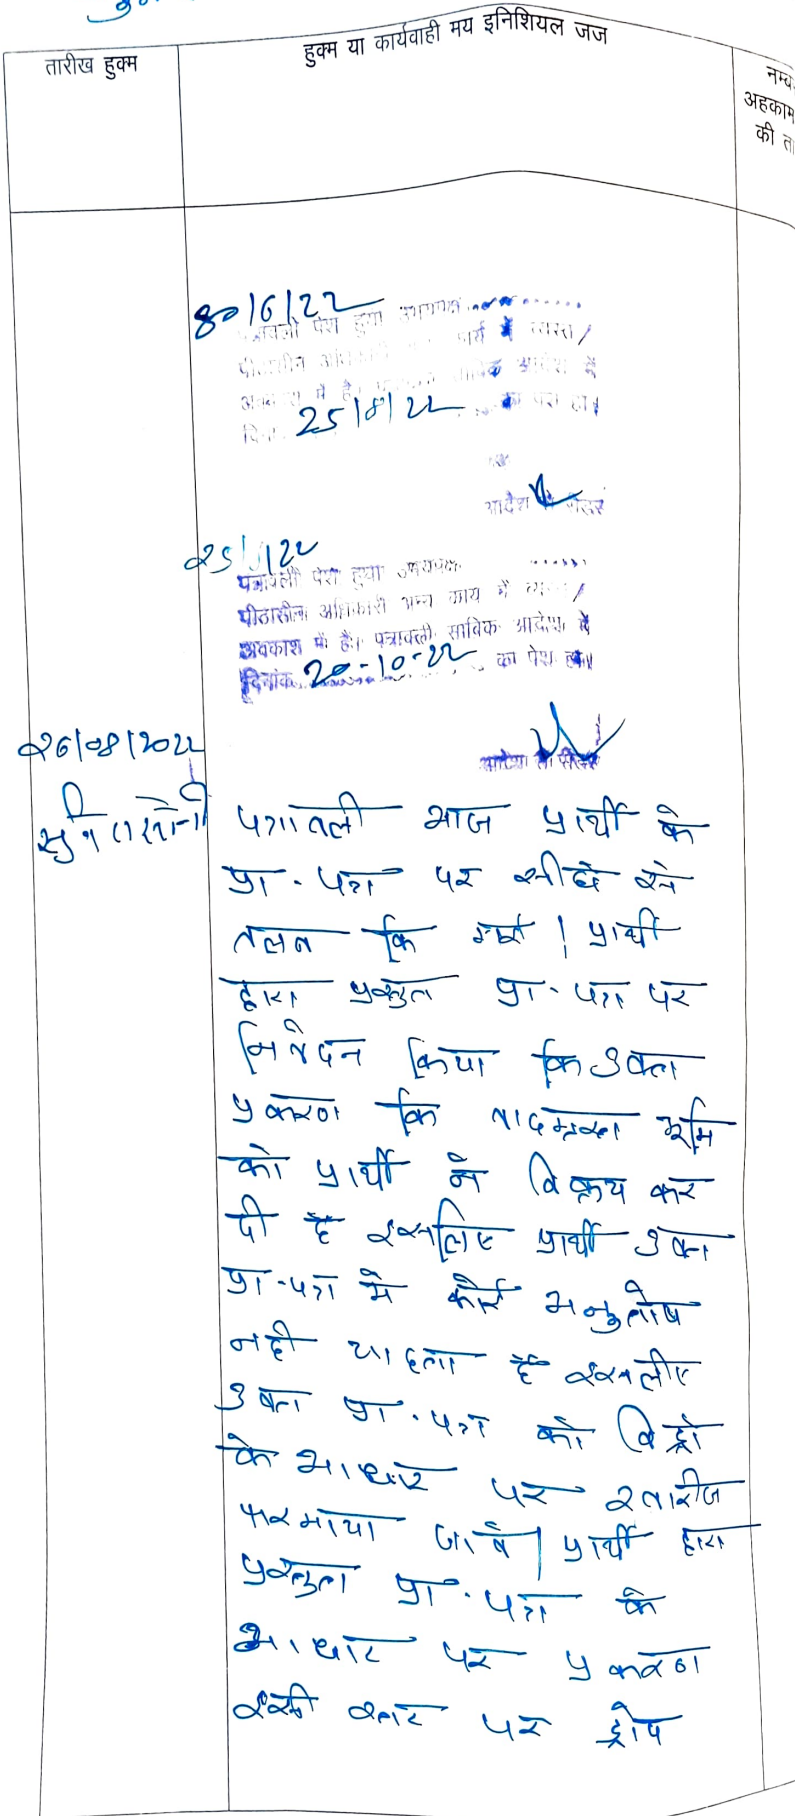 तारीख हुक्म
हुक्म या कार्यवाही मय इनिशियल जज
अहकाम
की
30/6/22
पत्रावली पेश हुयी उभयपक्ष
पीठासीन कार्य में व्यस्त/
अवकाश में है। साबिक आदेश में
25/8/22 को पेश हो।
आदेश से रीडर
25/ /22
पत्रावली पेश हुयी उभयपक्ष
पीठासीन अधिकारी अन्य कार्य में व्यस्त/
अवकाश में है। पत्रावली साबिक आदेश में
दिनांक 20-10-22 को पेश हो।
आदेश से रीडर
26/08/2022
पत्रावली आज प्रार्थी के
प्रा.पत्र पर सीधे से
तलब कि गयी। प्रार्थी
द्वारा प्रस्तुत प्रा.पत्र पर
निवेदन किया कि उक्त
प्रकरण कि वादग्रस्त भूमि
को प्रार्थी ने विक्रय कर
दी है इसलिए प्रार्थी उक्त
प्रा-पत्र मे कोई अनुतोष
नही चाहता है इसलीए
उक्त प्रा.पत्र को विड्रो
के आधार पर खारीज
फरमाया जावे। प्रार्थी द्वारा
प्रस्तुत प्रा.पत्र के
आधार पर प्रकरण
इसी स्तर पर ड्रोप